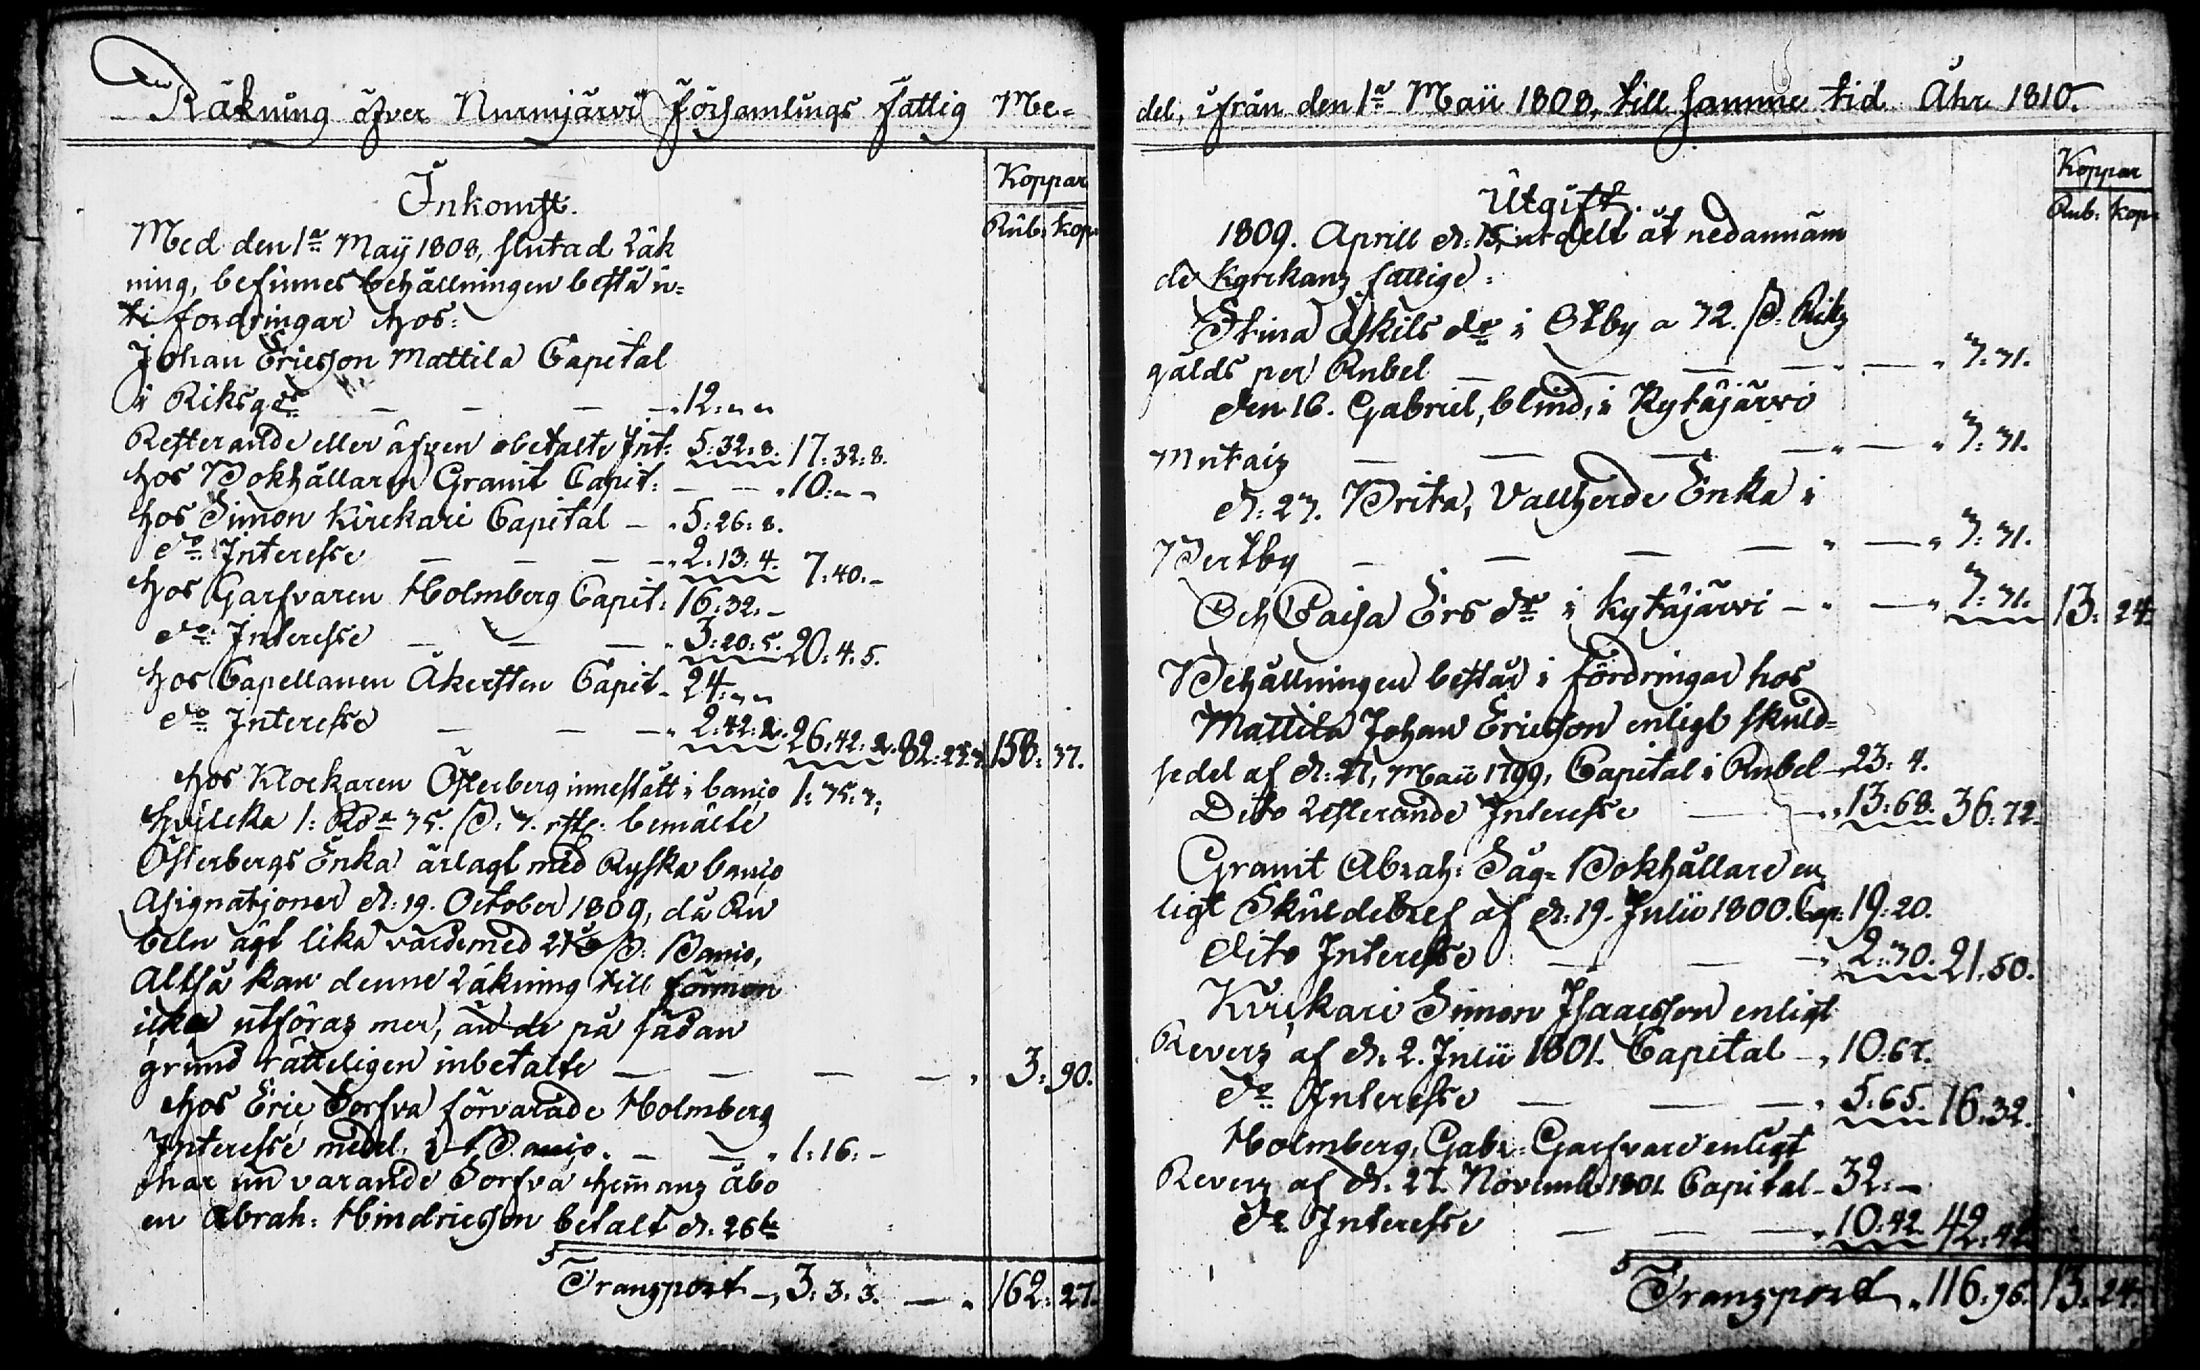 Räkning öfver Nurmijärvi Församlings Fattig Me-
Inkomst.
Koppar
Rub: kop:
Med den 1a Maÿ 1808, slutad Räk
ning, befinnes behållningen bestå u-
ti fordringar hos:
Johan Ericsson Mattila Capital
i Riksgds — — — 12: „ „
Resterande eller äfven obetalte Int: 5:32:8. 17:32:8.
hos Bokhållaren Granit Capit: — — 10: „ –
hos Simon Kirckari Capital — 5:26:8.
do Interesse — — — 2.13.4. 7:40.–
hos Garfvaren Holmberg Capit: 16:32.–
do Interesse — — — 3:20:5. 20:4:5.
hos Capellanen Åkersten Capit. 24: „ „
do Interesse — — — 2:42:2. 26:42:2. 82: 158: 37.
hos Klockaren Österberg innestått i banco 1:75:7.
hvilcka 1: Rdr 75. S: 7. rst: bemälte
Österbergs Enka ärlagt med Ryska banco
Assignatjoner d: 19. October 1809, då Ru
beln ägt lika värde med S: Banco,
Altså kan denne Räkning till förmon
icke utföras mer, än de på sådan
grund rätteligen inbetalte — — — 3: 90.
hos Eric Torfva förvarade Holmbergs
Interesse medel. Banco. — — 1:16:–
har nu varande Torfva hemmans åbo
en Abrah: Hindricsson betalt d: 26te
Transport —, 3:3:3. — 162: 27.
del, ifrån den 1a Maii 1808, till samme tid Åhr 1810.
Utgift.
Koppar
Rub: kop:
1809. Aprill d: 15, utdelt åt nedannäm
de kyrckans fattige:
Stina Eskils dr i Olby a 72. S: Riks
gälds per Rubel — — — 3:31.
den 16. Gabriel, blind, i Kytäjärvi
Mutais — — — 3:31.
d: 27. Brita, Vallherde Enka i
Pertby — — — 3:31.
Och Caisa Ers dr i Kytäjärvi — — 3:31. 13: 24.
Behållningen består i fördringar hos
Mattila Johan Ericsson enligt skuld-
sedel af d: 27, Maii 1799, Capital i Rubel 23: 4.
Dito resterande Interesse — 13:68. 36:72.
Granit Abrah: Såg-Bokhållare en
ligt Skuldebref af d: 19. Julii 1800. Cap: 19:20.
dito Interesse — — 2:30. 21.50.
Kirckari Simon Isaacsson enligt
Revers af d. 2. Julii 1801. Capital — 10:67.
do Interesse — — — 5:65. 16:32.
Holmberg, Gabr: Garfvare enligt
Revers af d. 27. Novemb 1801. Capital — 32:–
do Interesse — — — 10:42. 42:42.
Transport „ 116:96. 13: 24.